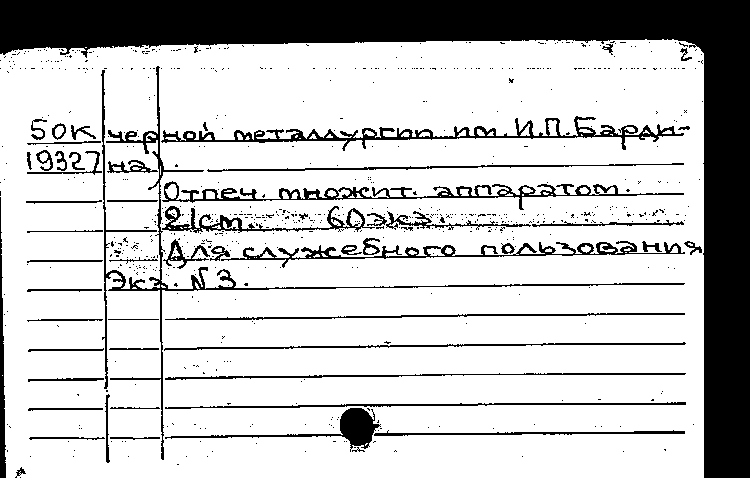 2
50К черной металлургии им. И.П.Барди-
19327 на).
Отпеч. множит. аппаратом.
21см. 60экз.
Для служебного пользования
Экз. №3.